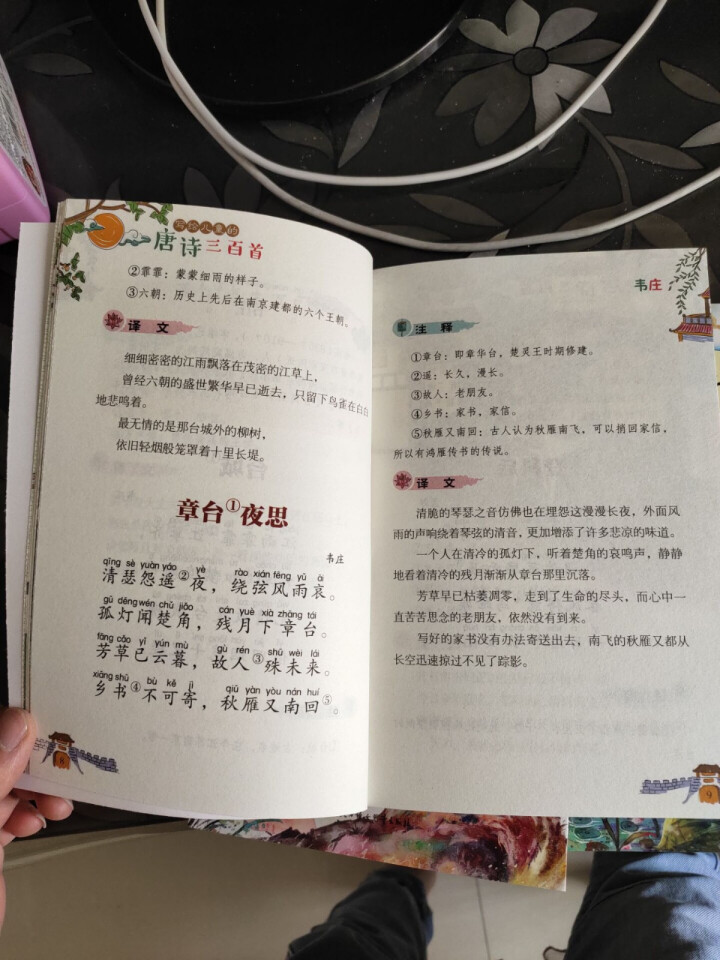 写给儿童的
唐诗三百首
②霏霏：蒙蒙细雨的样子。
③六朝：历史上先后在南京建都的六个王朝。
译文
细细密密的江雨飘落在茂密的江草上，
曾经六朝的盛世繁华早已逝去，只留下鸟雀在白白
地悲鸣着。
最无情的是那台城外的柳树，
依旧轻烟般笼罩着十里长堤。
章台①夜思
韦庄
qīng sè yuàn yáo yè rào xián fēng yǔ āi
清瑟怨遥②夜，绕弦风雨哀。
gū dēng wén chǔ jiǎo cán yuè xià zhāng tái
孤灯闻楚角，残月下章台。
fāng cǎo yǐ yún mù gù rén shū wèi lái
芳草已云暮，故人③殊未来。
xiāng shū bù kě jì qiū yàn yòu nán huí
乡书④不可寄，秋雁又南回⑤。
8
韦庄
注释
①章台：即章华台，楚灵王时期修建。
②遥：长久，漫长。
③故人：老朋友。
④乡书：家书，家信。
⑤秋雁又南回：古人认为秋雁南飞，可以捎回家信，
所以有鸿雁传书的传说。
译文
清脆的琴瑟之音仿佛也在埋怨这漫漫长夜，外面风
雨的声响绕着琴弦的清音，更加增添了许多悲凉的味道。
一个人在清冷的孤灯下，听着楚角的哀鸣声，静静
地看着清冷的残月渐渐从章台那里沉落。
芳草早已枯萎凋零，走到了生命的尽头，而心中一
直苦苦思念的老朋友，依然没有到来。
写好的家书没有办法寄送出去，南飞的秋雁又都从
长空迅速掠过不见了踪影。
9